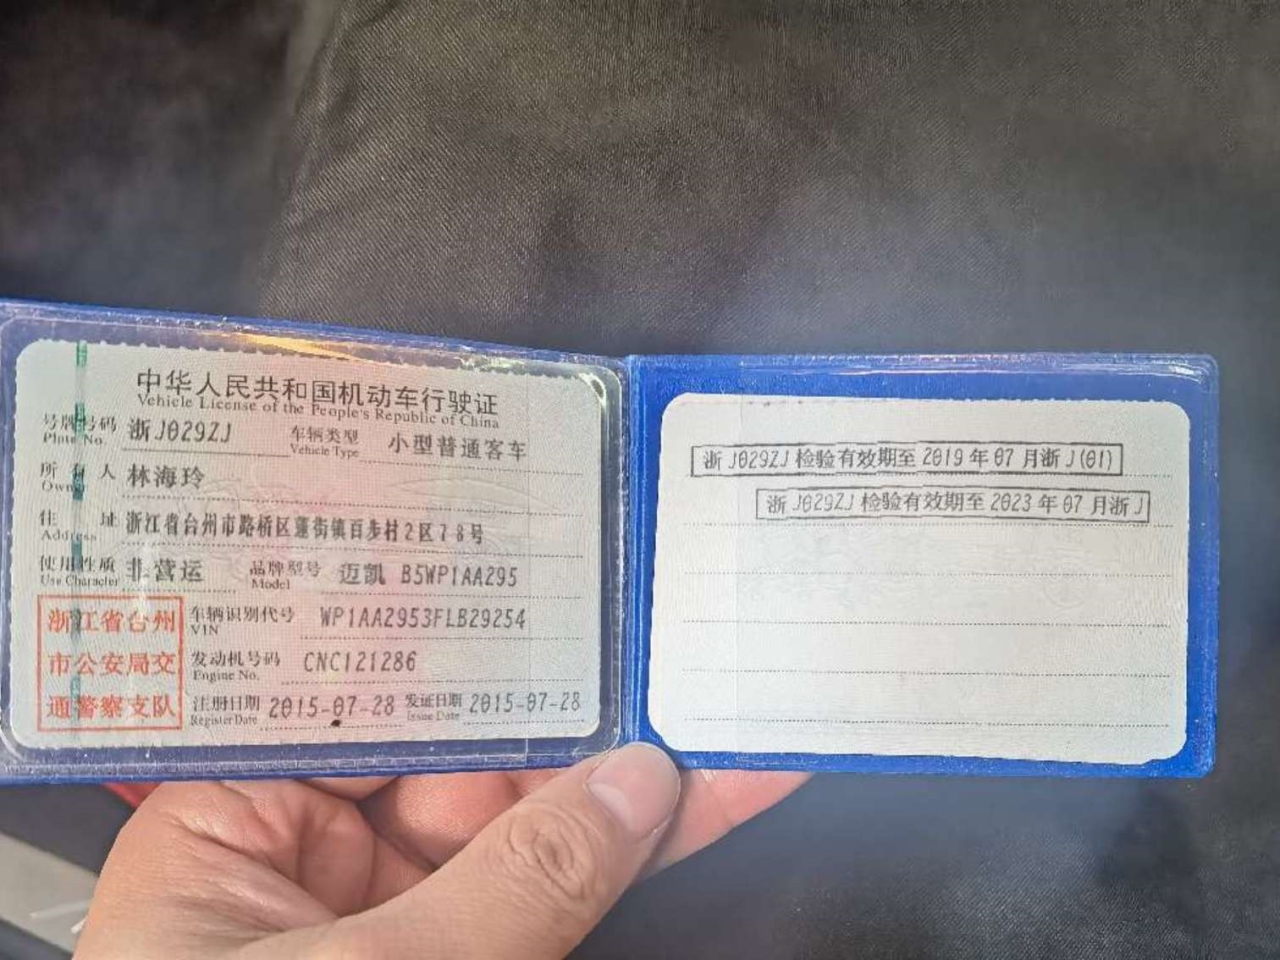 中华人民共和国机动车行驶证
Vehicle License of the People's Republic of China
号牌号码 浙J029ZJ 车辆类型 小型普通客车
Plate No. Vehicle Type
所有人 林海玲
Owner
住址 浙江省台州市路桥区蓬街镇百步村2区78号
Address
使用性质 非营运 品牌型号 迈凯 B5WP1AA295
Use Character Model
车辆识别代号 WP1AA2953FLB29254
VIN
发动机号码 CNC121286
Engine No.
注册日期 2015-07-28 发证日期 2015-07-28
Register Date Issue Date
浙江省台州
市公安局交
通警察支队
浙J029ZJ检验有效期至2019年07月浙J(01)
浙J029ZJ检验有效期至2023年07月浙J